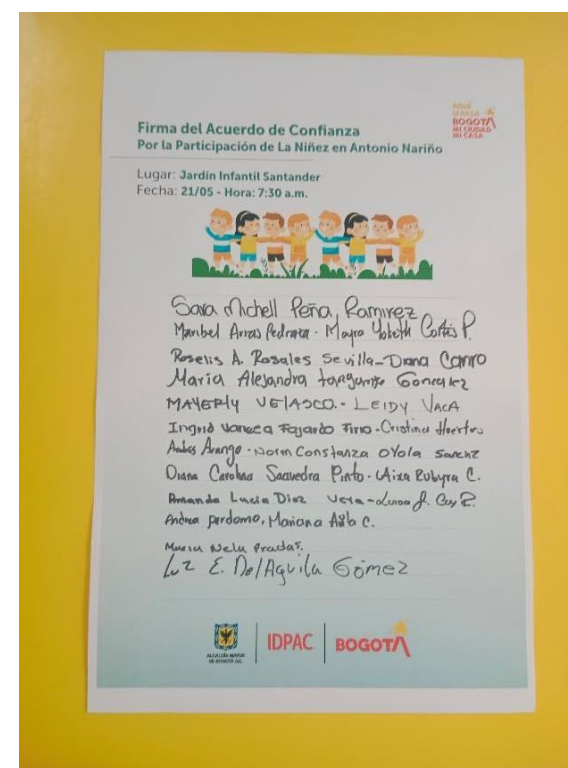 AQUÍ
SÍ PASA
BOGOTÁ
MI CIUDAD
MI CASA
Firma del Acuerdo de Confianza
Por la Participación de La Niñez en Antonio Nariño
Lugar: Jardín Infantil Santander
Fecha: 21/05 - Hora: 7:30 a.m.
Sara Michell Peña Ramirez
Maribel Arias Pedraza - Mayra Yobeth Cortés P.
Roselis A. Rosales Sevilla - Diana
Maria Alejandra Gonzalez
MAYERLY VELASCO. - LEIDY VACA
Ingrid Vanessa Fajardo Tino - Cristina Huertas
Andres Arango - Norm Constanza Oyola Sanchz
Diana Carolina Saavedra Pinto - Aixa Rubyra C.
Amanda Lucia Diaz Vera - Luisa
Andrea perdomo, Mariana C.
Maria Nela Pradas.
Luz E. Del Aguila Gómez
ALCALDÍA MAYOR
DE BOGOTÁ D.C.
IDPAC
BOGOTÁ